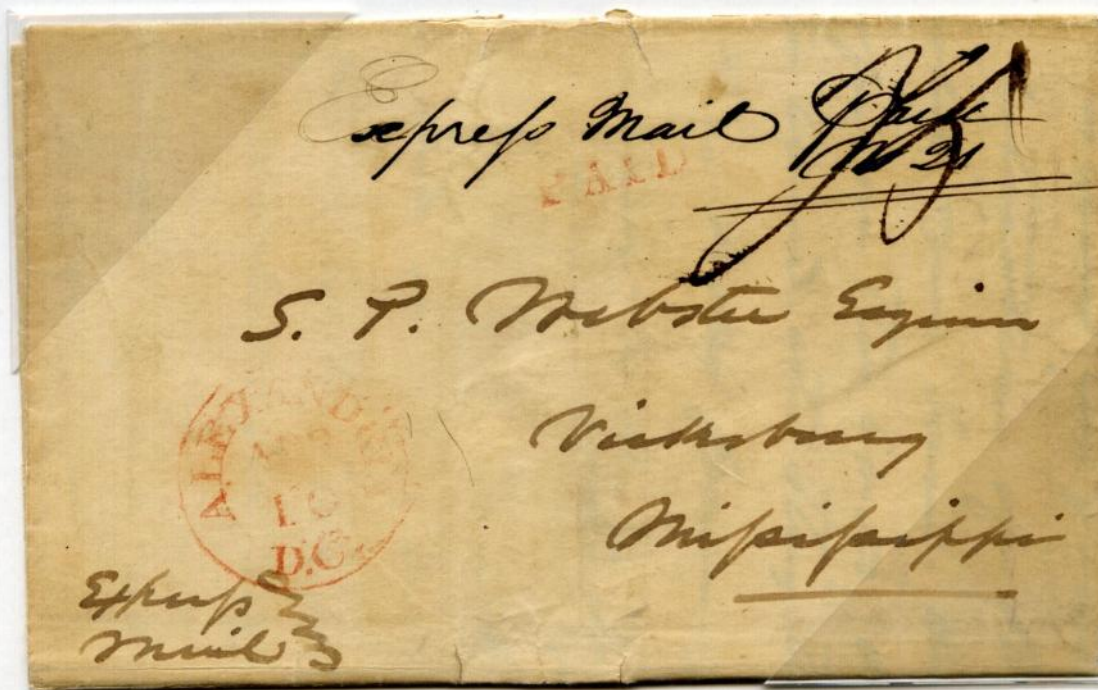 Express Mail Paid
PAID
S. P. Webster Esquire
Vicksburg
Mississippi
ALEXANDRIA
APR
10
D.C.
Express
Mail